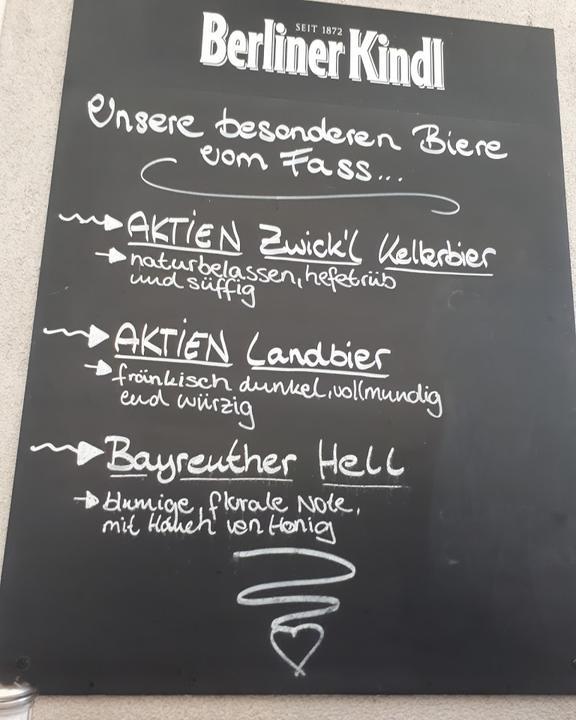 SEIT 1872
Berliner Kindl
Unsere besonderen Biere
vom Fass...
AKTiEN Zwick'l Kellerbier
naturbelassen, hefetrüb
und süffig
AKTiEN Landbier
fränkisch dunkel, vollmundig
und würzig
Bayreuther Hell
blumige, florale Note,
mit Hauch von Honig